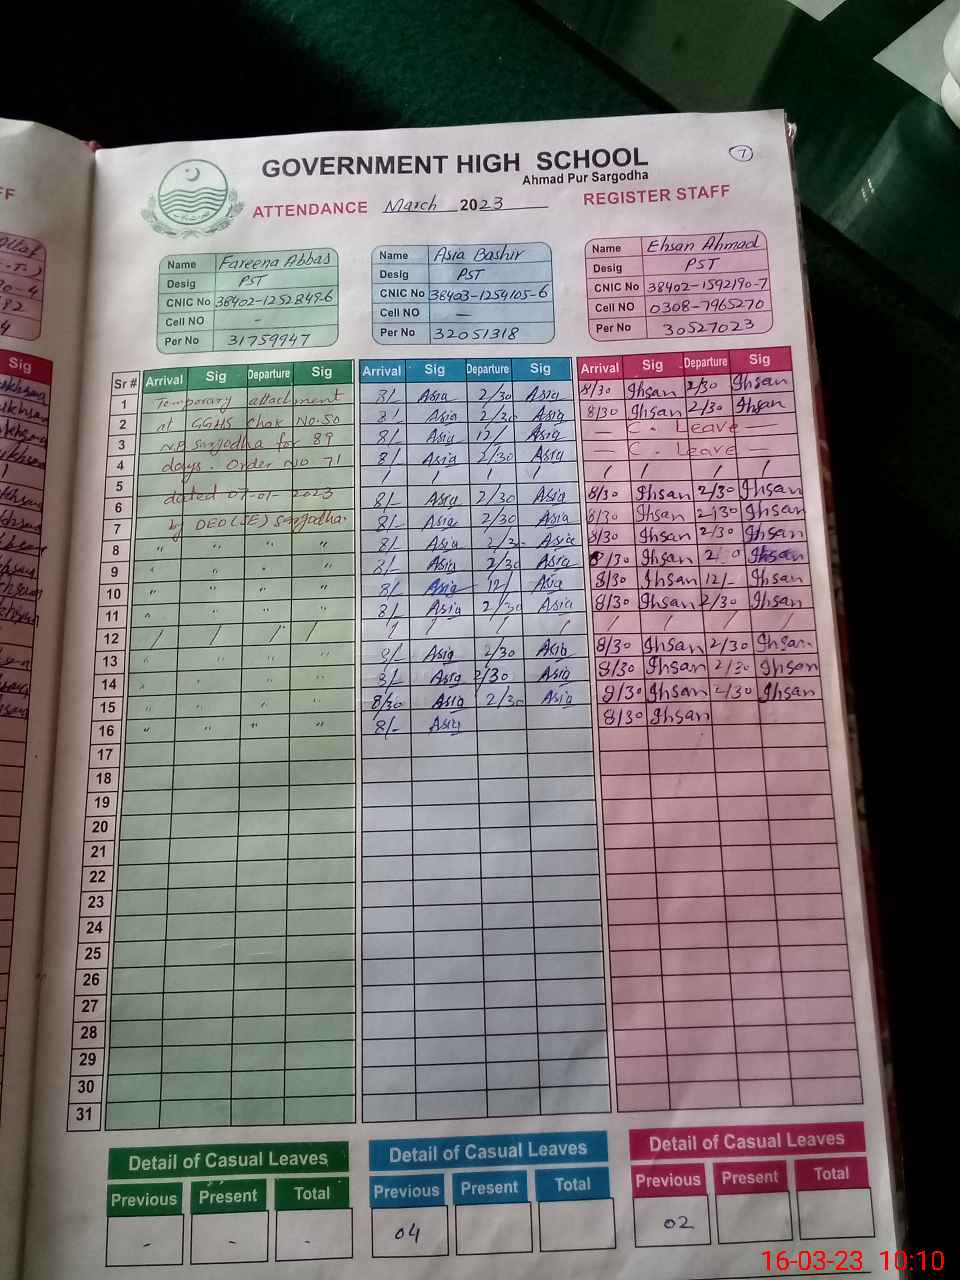 GOVERNMENT HIGH SCHOOL
7
Ahmad Pur Sargodha
ATTENDANCE March 2023
REGISTER STAFF
Name Fareena Abbas
Desig PST
CNIC No 38402-1252849-6
Cell NO -
Per No 31759947
Name Asia Bashir
Desig PST
CNIC No 38403-1254105-6
Cell NO -
Per No 32051318
Name Ehsan Ahmad
Desig PST
CNIC No 38402-1592190-7
Cell NO 0308-7965270
Per No 30527023
Sig
Sr # Arrival Sig Departure Sig Arrival Sig Departure Sig Arrival Sig Departure Sig
1 Temporary attachment 8/- Asia 2/30 Asia 8/30 Ihsan 2/30 Ihsan
2 at GGHS Chak No.50 8/- Asia 2/30 Asia 8/30 Ihsan 2/30 Ihsan
3 N.B Sargodha for 89 8/- Asia 12/ Asia — C. Leave —
4 days. Order No 71 8/- Asia 2/30 Asia — C. Leave —
5 / / / / / / / /
6 dated 07-01-2023 8/- Asia 2/30 Asia 8/30 Ihsan 2/30 Ihsan
7 by DEO(SE) Sargodha. 8/- Asia 2/30 Asia 8/30 Ihsan 2/30 Ihsan
8 " " " " 8/- Asia Asia 8/30 Ihsan 2/30 Ihsan
9 " " " " 8/- Asia 2/30 Asia 8/30 Ihsan Ihsan
10 " " " " 8/- Asia 12/ Asia 8/30 Ihsan 12/- Ihsan
11 " " " " 8/- Asia 2/30 Asia 8/30 Ihsan 2/30 Ihsan
12 / / / / / / / / / / / /
13 " " " " 8/- Asia 2/30 Asia 8/30 Ihsan 2/30 Ihsan
14 " " " " 8/- Asia 2/30 Asia 8/30 Ihsan 2/30 Ihsan
15 " " " " 8/30 Asia 2/30 Asia 8/30 Ihsan 2/30 Ihsan
16 " " " " 8/- Asia 8/30 Ihsan
17
18
19
20
21
22
23
24
25
26
27
28
29
30
31
Detail of Casual Leaves Detail of Casual Leaves Detail of Casual Leaves
Previous Present Total Previous Present Total Previous Present Total
- - - 04 02
16-03-23 10:10